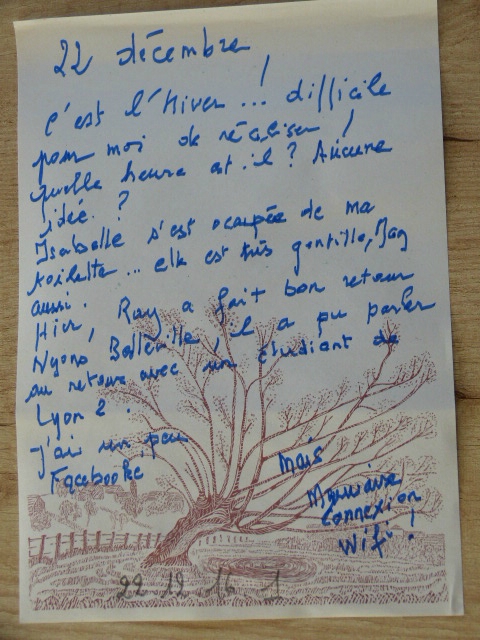 22 décembre
C'est l'hiver...! difficile
pour moi de réaliser !
quelle heure est-il ? Aucune
idée. ?
Isabelle s'est occupée de ma
toilette... elle est très gentille, May
aussi.
Hier, Ray a fait bon retour
Nyons Bellerive, il a pu parler
au retour avec un étudiant de
Lyon 2.
j'ai un peu
Facebooké
mais
Mauvaise
Connexion
Wifi !
22 12 16 1